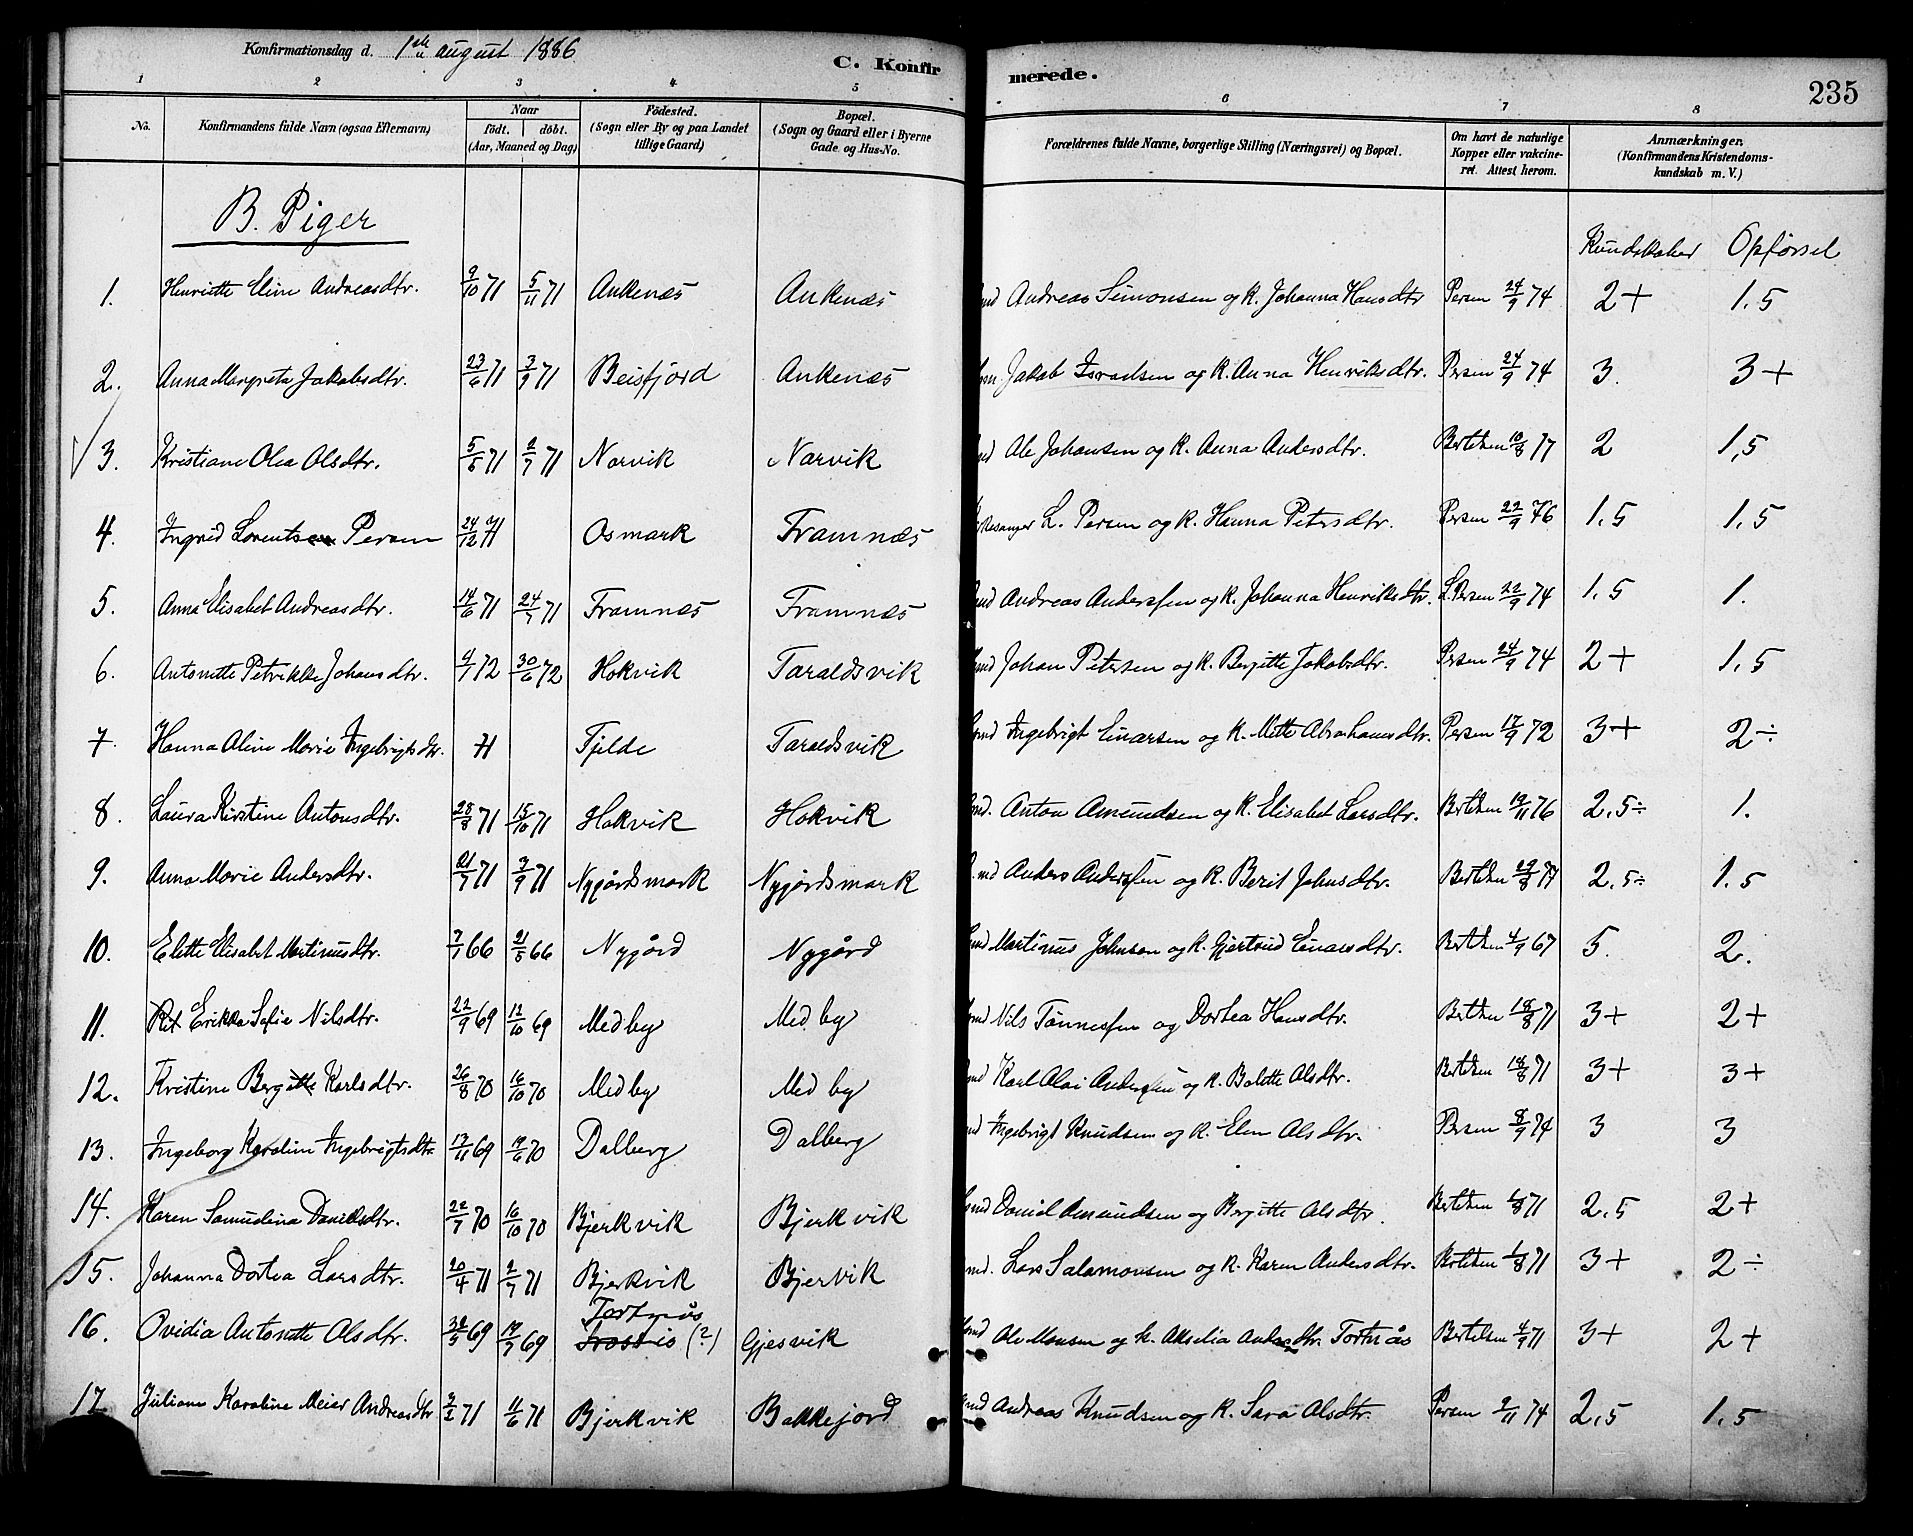 Konfirmationsdag d. 1ste august 1886
C. Konfirmerede.
235
1 2 3 4 5 6 7 8
No. Konfirmandens fulde Navn (ogsaa Efternavn) Naar født. døbt. (Aar, Maaned og Dag) Fødested. (Sogn eller By og paa Landet tillige Gaard) Bopæl. (Sogn og Gaard eller i Byerne Gade og Hus-No. Forældrenes fulde Navne, borgerlige Stilling (Næringsvei) og Bopæl. Om havt de naturlige Kopper eller vakcineret. Attest herom. Anmærkninger. (Konfirmandens Kristendomskundskab m. V.)
B. Piger
Kundskaber Opførsel
1. Henriette Eline Andreasdtr. 9/10 71 5/11 71 Ankenæs Ankenæs Andreas Simonsen og K. Johanna Hansdtr Persen 24/9 74 2+ 1.5
2. Anna Margreta Jakobsdtr. 23/6 71 3/9 71 Beisfjord Ankenæs Jakob Israelsen og K. Anna Henriksdtr. Persen 24/9 74 3. 3+
3. Kristiane Olea Olsdtr. 5/5 71 2/7 71 Narvik Narvik Ole Johansen og K. Anna Andersdtr. Bertelsen 10/8 77 2 1,5
4. Ingrid Lorentsen Persen 24/12 71 Osmark Framnæs L. Persen og K. Hanna Petersdtr. Persen 22/9 76 1.5 1.5
5. Anna Elisabet Andreasdtr. 14/6 71 24/7 71 Framnæs Framnæs Andreas Anderssen og K. Johanna Henriksdtr. L. Persen 22/9 74 1.5 1.
6. Antonette Petrikke Johansdtr. 4/1 72 30/6 72 Hokvik Taraldsvik Johan Petersen og K. Bergitte Jakobsdtr. Persen 24/9 74 2+ 1.5
7. Hanna Aline Marie Ingebrigtsdtr. 71 Fjelde Taraldsvik Ingebrigt Einarsen og K. Mette Abrahamsdtr. Persen 17/9 72 3+ 2÷
8. Laura Kirstine Antonsdtr. 28/8 71 15/10 71 Hokvik Hokvik Anton Amundsen og K. Elisabet Larsdtr. Bertelsen 19/11 76 2.5÷ 1.
9. Anna Marie Andersdtr. 21/7 71 3/9 71 Nygårdsmark Nygårdsmark Anders Anderssen og K. Berit Johnsdtr. Bertelsen 22/8 77 2.5÷ 1.5
10. Elette Elisabet Martinusdtr. 7/1 66 21/5 66 Nygård Nygård Martinus Johnsen og K. Gjertrud Einarsdtr. Bertelsen 4/9 67 5. 2.
11. Rit Erikka Sofie Nilsdtr. 22/9 69 17/10 69 Medby Medby Nils Tønnessen og Dortea Hansdtr. Bertelsen 18/8 71 3+ 2+
12. Kristine Bergitte Karlsdtr. 26/8 70 16/10 70 Medby Medby Karl Olai Anderssen og K. Bolette Olsdtr. Bertelsen 18/8 71 3+ 3+
13. Ingeborg Karoline Ingebrigtsdtr 17/11 69 19/6 70 Dalberg Dalberg Ingebrigt Knudsen og K. Elen Olsdtr. Persen 8/9 74 3 3
14. Karen Samudina Danielsdtr. 22/7 70 16/10 70 Bjerkvik Bjerkvik Daniel Amundsen og Bergitte Olsdtr. Bertelsen 1/8 71 2.5 2+
15. Johanna Dortea Larsdtr. 20/4 71 2/7 71 Bjerkvik Bjervik Lars Salamonsen og K. Karen Andersdtr. Bertelsen 1/8 71 3+ 2÷
16. Ovidia Antonette Olsdtr. 69 19/7 69 Tortnås (?) Gjesvik Ole Monsen og K. Akselia Andersdtr. Tortnås Bertelsen 4/9 71 3+ 2+
17 Juliane Karoline Meier Andreasdtr 3/2 71 11/6 71 Bjerkvik Bakkejord Andreas Knudsen og K. Sara Olsdtr. Persen 2/11 74 2.5 1.5